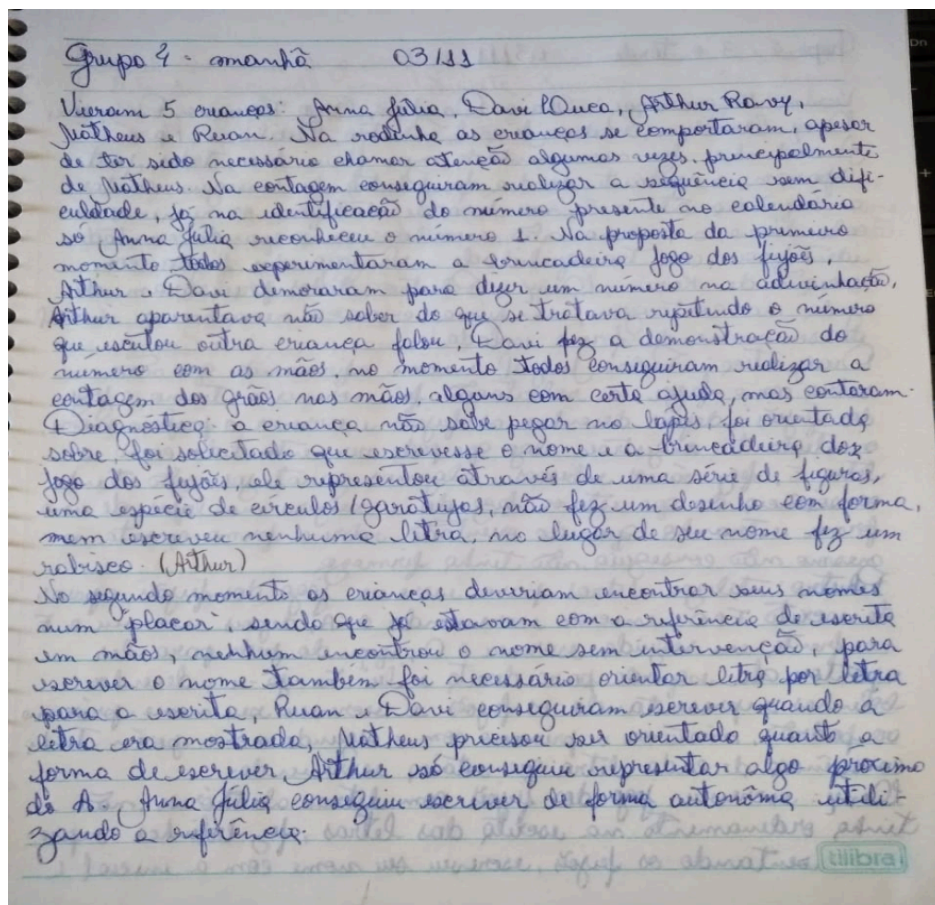 Grupo 4 - manhã 03/11
Vieram 5 crianças: Anna Júlia, Davi Luca, Arthur Ravy,
Matheus e Ruan. Na rodinha as crianças se comportaram, apesar
de ter sido necessário chamar atenção algumas vezes, principalmente
de Matheus. Na contagem conseguiram realizar a sequência sem difi-
culdade, já na identificação do número presente no calendário
só Anna Júlia reconheceu o número 1. Na proposta do primeiro
momento todos experimentaram a brincadeira jogo dos feijões,
Arthur e Davi demoraram para dizer um número na adivinhação,
Arthur aparentava não saber do que se tratava repetindo o número
que escutou outra criança falou, Davi fez a demonstração do
número com as mãos, no momento todos conseguiram realizar a
contagem dos grãos nas mãos, alguns com certa ajuda, mas contaram.
Diagnóstico: a criança não sabe pegar no lápis, foi orientada
sobre, foi solicitado que escrevesse o nome e a brincadeira do
jogo dos feijões, ele representou através de uma série de figuras,
uma espécie de círculos/garatujas, não fez um desenho com forma,
nem escreveu nenhuma letra, no lugar de seu nome fez um
rabisco. (Arthur)
No segundo momento as crianças deveriam encontrar seus nomes
num "placar", sendo que já estavam com a referência de escrita
em mãos, nenhum encontrou o nome sem intervenção, para
escrever o nome também foi necessário orientar letra por letra
para a escrita, Ruan e Davi conseguiram escrever quando a
letra era mostrada, Matheus precisou ser orientado quanto a
forma de escrever, Arthur só conseguiu representar algo próximo
do A. Anna Júlia conseguiu escrever de forma autonôma utili-
zando a referência.
tilibra
Dn